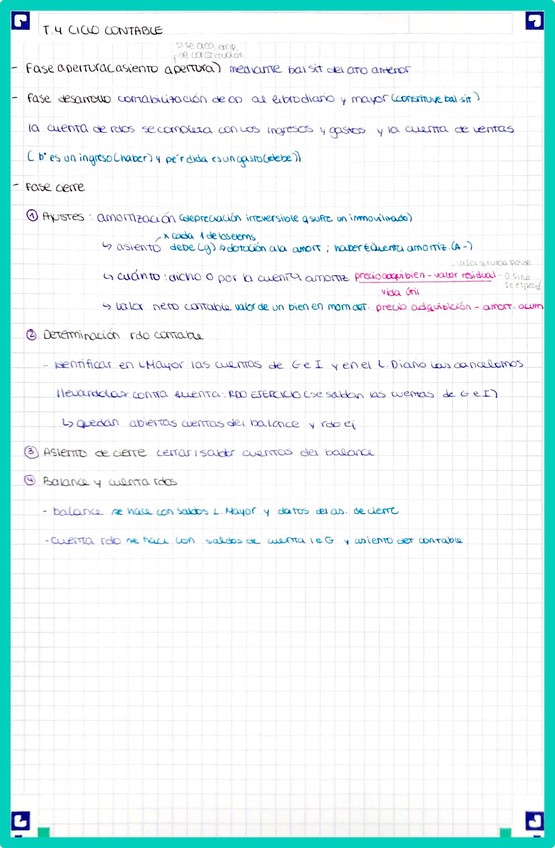 T.4 CICLO CONTABLE
si se crea emp
de constitución
- Fase apertura (asiento apertura) mediante bal sit del año anterior
- Fase desarrollo contabilización de op al libro diario y mayor (constituye bal sit)
la cuenta de rdos se completa con los ingresos y gastos y la cuenta de ventas
(bº es un ingreso (haber) y pérdida es un gasto (debe))
- Fase cierre
① Ajustes: amortización (depreciación irreversible q sufre un inmovilizado)
x cada 1 de los elems
↳ asiento debe (g) dotación a la amort; haber cuenta amortiz. (A-)
↳ cuánto: dicho o por la cuenta amortiz precio adq bien - valor residual
vida útil
↳ valor neto contable valor de un bien en mom det. precio adquisición - amort. acum
② Determinación rdo contable
- identificar en L Mayor las cuentas de G e I y en el L. Diario las cancelamos
llevándolas contra cuenta RDO EJERCICIO (se saldan las cuentas de G e I)
↳ quedan abiertas cuentas del balance y rdo ej
③ Asiento de cierre cerrar/saldar cuentas del balance
④ Balance y cuenta rdos
- balance se hace con saldos L. Mayor y datos del as. de cierre
- cuenta rdo se hace con saldos de cuenta I e G y asiento det contable